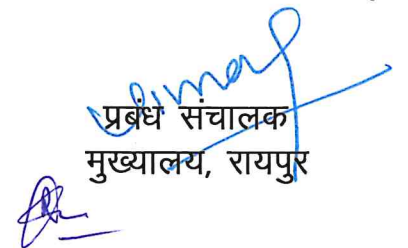 प्रबंध संचालक
मुख्यालय, रायपुर